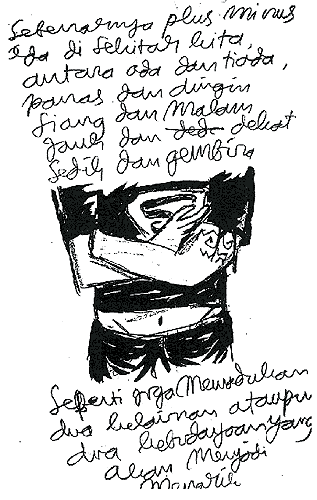 Sebenarnya plus minus
ada di sekitar kita,
antara ada dan tiada,
panas dan dingin
siang dan malam
jauh dan dekat
sedih dan gembira
Seperti juga Memadukan
dua kelainan ataupun
dua kebudayaan yang
akan Menjadi
Menarik